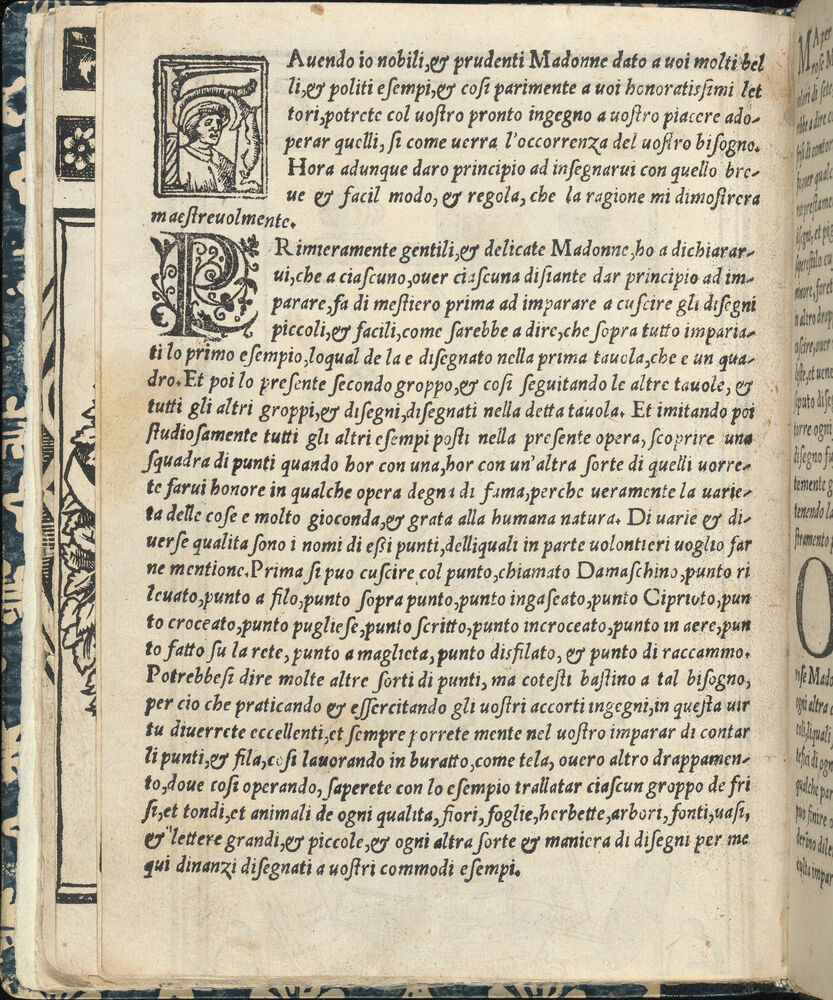 HAuendo io nobili,& prudenti Madonne dato a uoi molti bel
li,& politi eſempi,& coſi parimente a uoi honoratiſſimi let
tori,potrete col uoſtro pronto ingegno a uoſtro piacere ado-
perar quelli, ſi come uerra l'occorrenza del uoſtro biſogno.
Hora adunque daro principio ad inſegnarui con quello bre-
ue & facil modo, & regola, che la ragione mi dimoſtrera
maeſtreuolmente.
PRimieramente gentili,& delicate Madonne,ho a dichiarar-
ui,che a ciaſcuno,ouer ciaſcuna diſiante dar principio ad im-
parare,fa di meſtiero prima ad imparare a cuſcire gli diſegni
piccoli,& facili,come ſarebbe a dire,che ſopra tutto imparia-
ti lo primo eſempio,loqual de la e diſegnato nella prima tauola,che e un qua-
dro.Et poi lo preſente ſecondo groppo,& coſi ſeguitando le altre tauole, &
tutti gli altri groppi,& diſegni,diſegnati nella detta tauola. Et imitando poi
ſtudioſamente tutti gli altri eſempi poſti nella preſente opera, ſcoprire una
ſquadra di punti quando hor con una,hor con un'altra ſorte di quelli uorre-
te farui honore in qualche opera degna di fama,perche ueramente la uarie-
ta delle coſe e molto gioconda,& grata alla humana natura. Di uarie & di-
uerſe qualita ſono i nomi di eßi punti,delliquali in parte uolontieri uoglio far
ne mentione.Prima ſi puo cuſcire col punto,chiamato Damaſchino,punto ri
leuato,punto a filo,punto ſopra punto,punto ingaſeato,punto Ciprioto,pun
to croceato,punto puglieſe,punto ſcritto,punto incroceato,punto in aere,pun
to fatto ſu la rete, punto a maglieta, punto disfilato, & punto di raccammo.
Potrebbeſi dire molte altre ſorti di punti, ma coteſti baſtino a tal biſogno,
per cio che praticando & eſſercitando gli uoſtri accorti ingegni,in queſta uir
tu diuerrete eccellenti,et ſempre porrete mente nel uoſtro imparar di contar
li punti,& fila,coſi lauorando in buratto,come tela, ouero altro drappamen-
to,doue coſi operando, ſaperete con lo eſempio trallatar ciaſcun groppo de fri
ſi,et tondi,et animali de ogni qualita,fiori,foglie,herbette,arbori,fonti,uaſi,
& lettere grandi,& piccole,& ogni altra ſorte & maniera di diſegni per me
qui dinanzi diſegnati a uoſtri commodi eſempi.